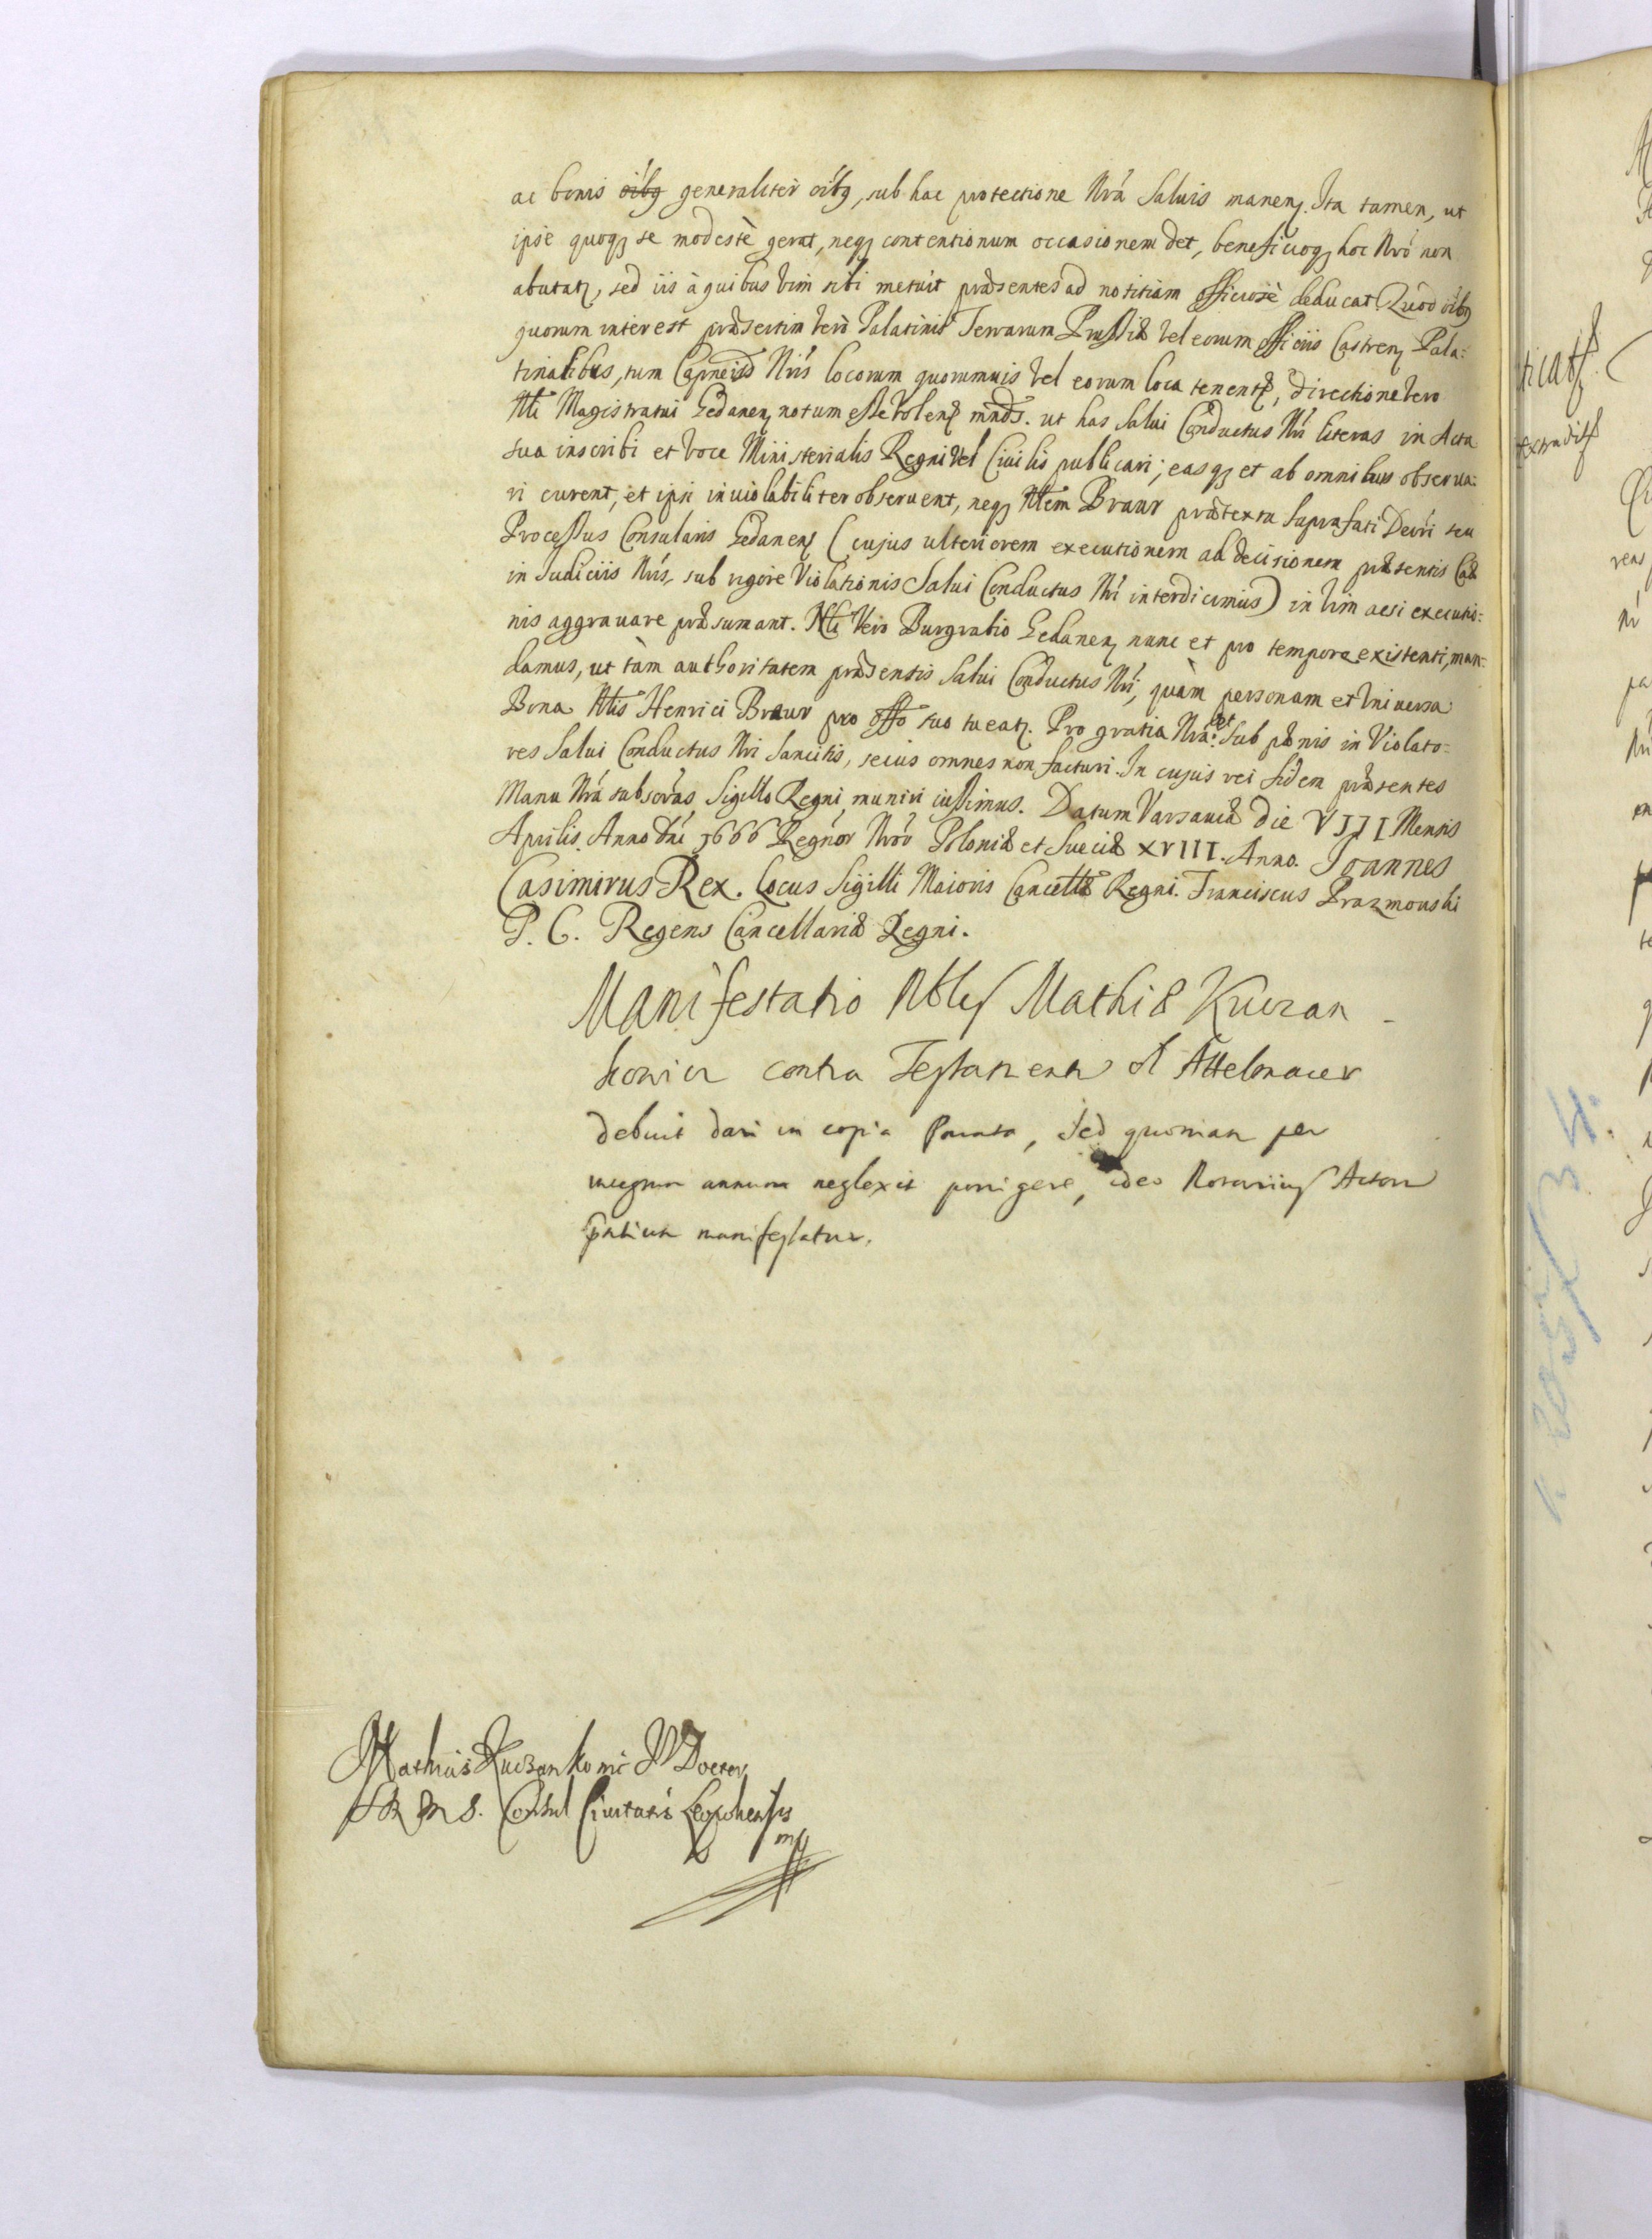 ac bonis oı̃bq generaliter oı̃bq, sub hac protectione Nrá Saluis manenꝫ. Ita tamen, ut
ipse quoqꝫ se modestè gerat, neqꝫ contentionum occasionem det, beneficioqꝫ hoc Nró non
abutatꝫ, sed iis à quibus vim sibi metuit præsentes ad notitiam officiosè deducat. Quod oı̃bq
quorum interest præsertim verò Palatinis Terrarum Prussiæ vel eorum officiis Castrenꝫ Pala:
tinalibus, tum Capneis Nrís locorum quorumuis vel eorum loca tenentꝫ, directione vero
Nli Magistratui Gedanenꝫ notum esse volenꝫ mnds. ut has Salui Conductus Nrí literas in Acta
sua inscribi et voce Ministerialis Regni vel Ciuilis publicari; easqꝫ et ab omnibus obserua:
ri curent, et ipsi inuiolabiliter obseruent, neqꝫ Nlem Braur prætextu suprafati Decri seu
Processus Consularis Gedanenꝫ (cujus ulteriorem executionem ad decisionem præsentis Cae
in Judiciis Nrís, sub rigore Violationis Salui Conductus Nrí interdicimus) in vim aesi executio:
nis aggrauare præsumant. Nli Vero Burgrabio Gedanenꝫ nunc et pro tempore existenti, man:
damus, ut tàm authoritatem præsentis Salui Conductus Nrí, quàm personam et Vniuersa
Bona Nlis Henrici Braur pro offo suo tueatꝫ. Pro gratia Nrá et sub pænis in Violato=
res Salui Conductus Nri sancitis, secus omnes non facturi. In cujus rei fidem præsentes
Manu Nrá subscras Sigillo Regni muniri iussimus. Datum Varsauiæ Die VIII Mensis
Aprilis Anno Dni 1666 Regnor Nror Poloniæ et Sueciæ XVIII. Anno. Joannes
Casimirus Rex. Locus Sigilli Maioris Cancellæ Regni. Franciscus Prazmouski
P. C. Regens Cancellariæ Regni.
Manifestatio Nblis Mathiæ Kuczan
kowicz contra Testamentum ol Attelmaier
debuit dari in copia parata, sed quoniam per
integrum annum neglexit porrigere, ideo Notarius Actorum
pntium manifestatur.
Mathias Kuczankowic Doctor
S R M S. Consul Ciuitatis Leopoliensis
mp